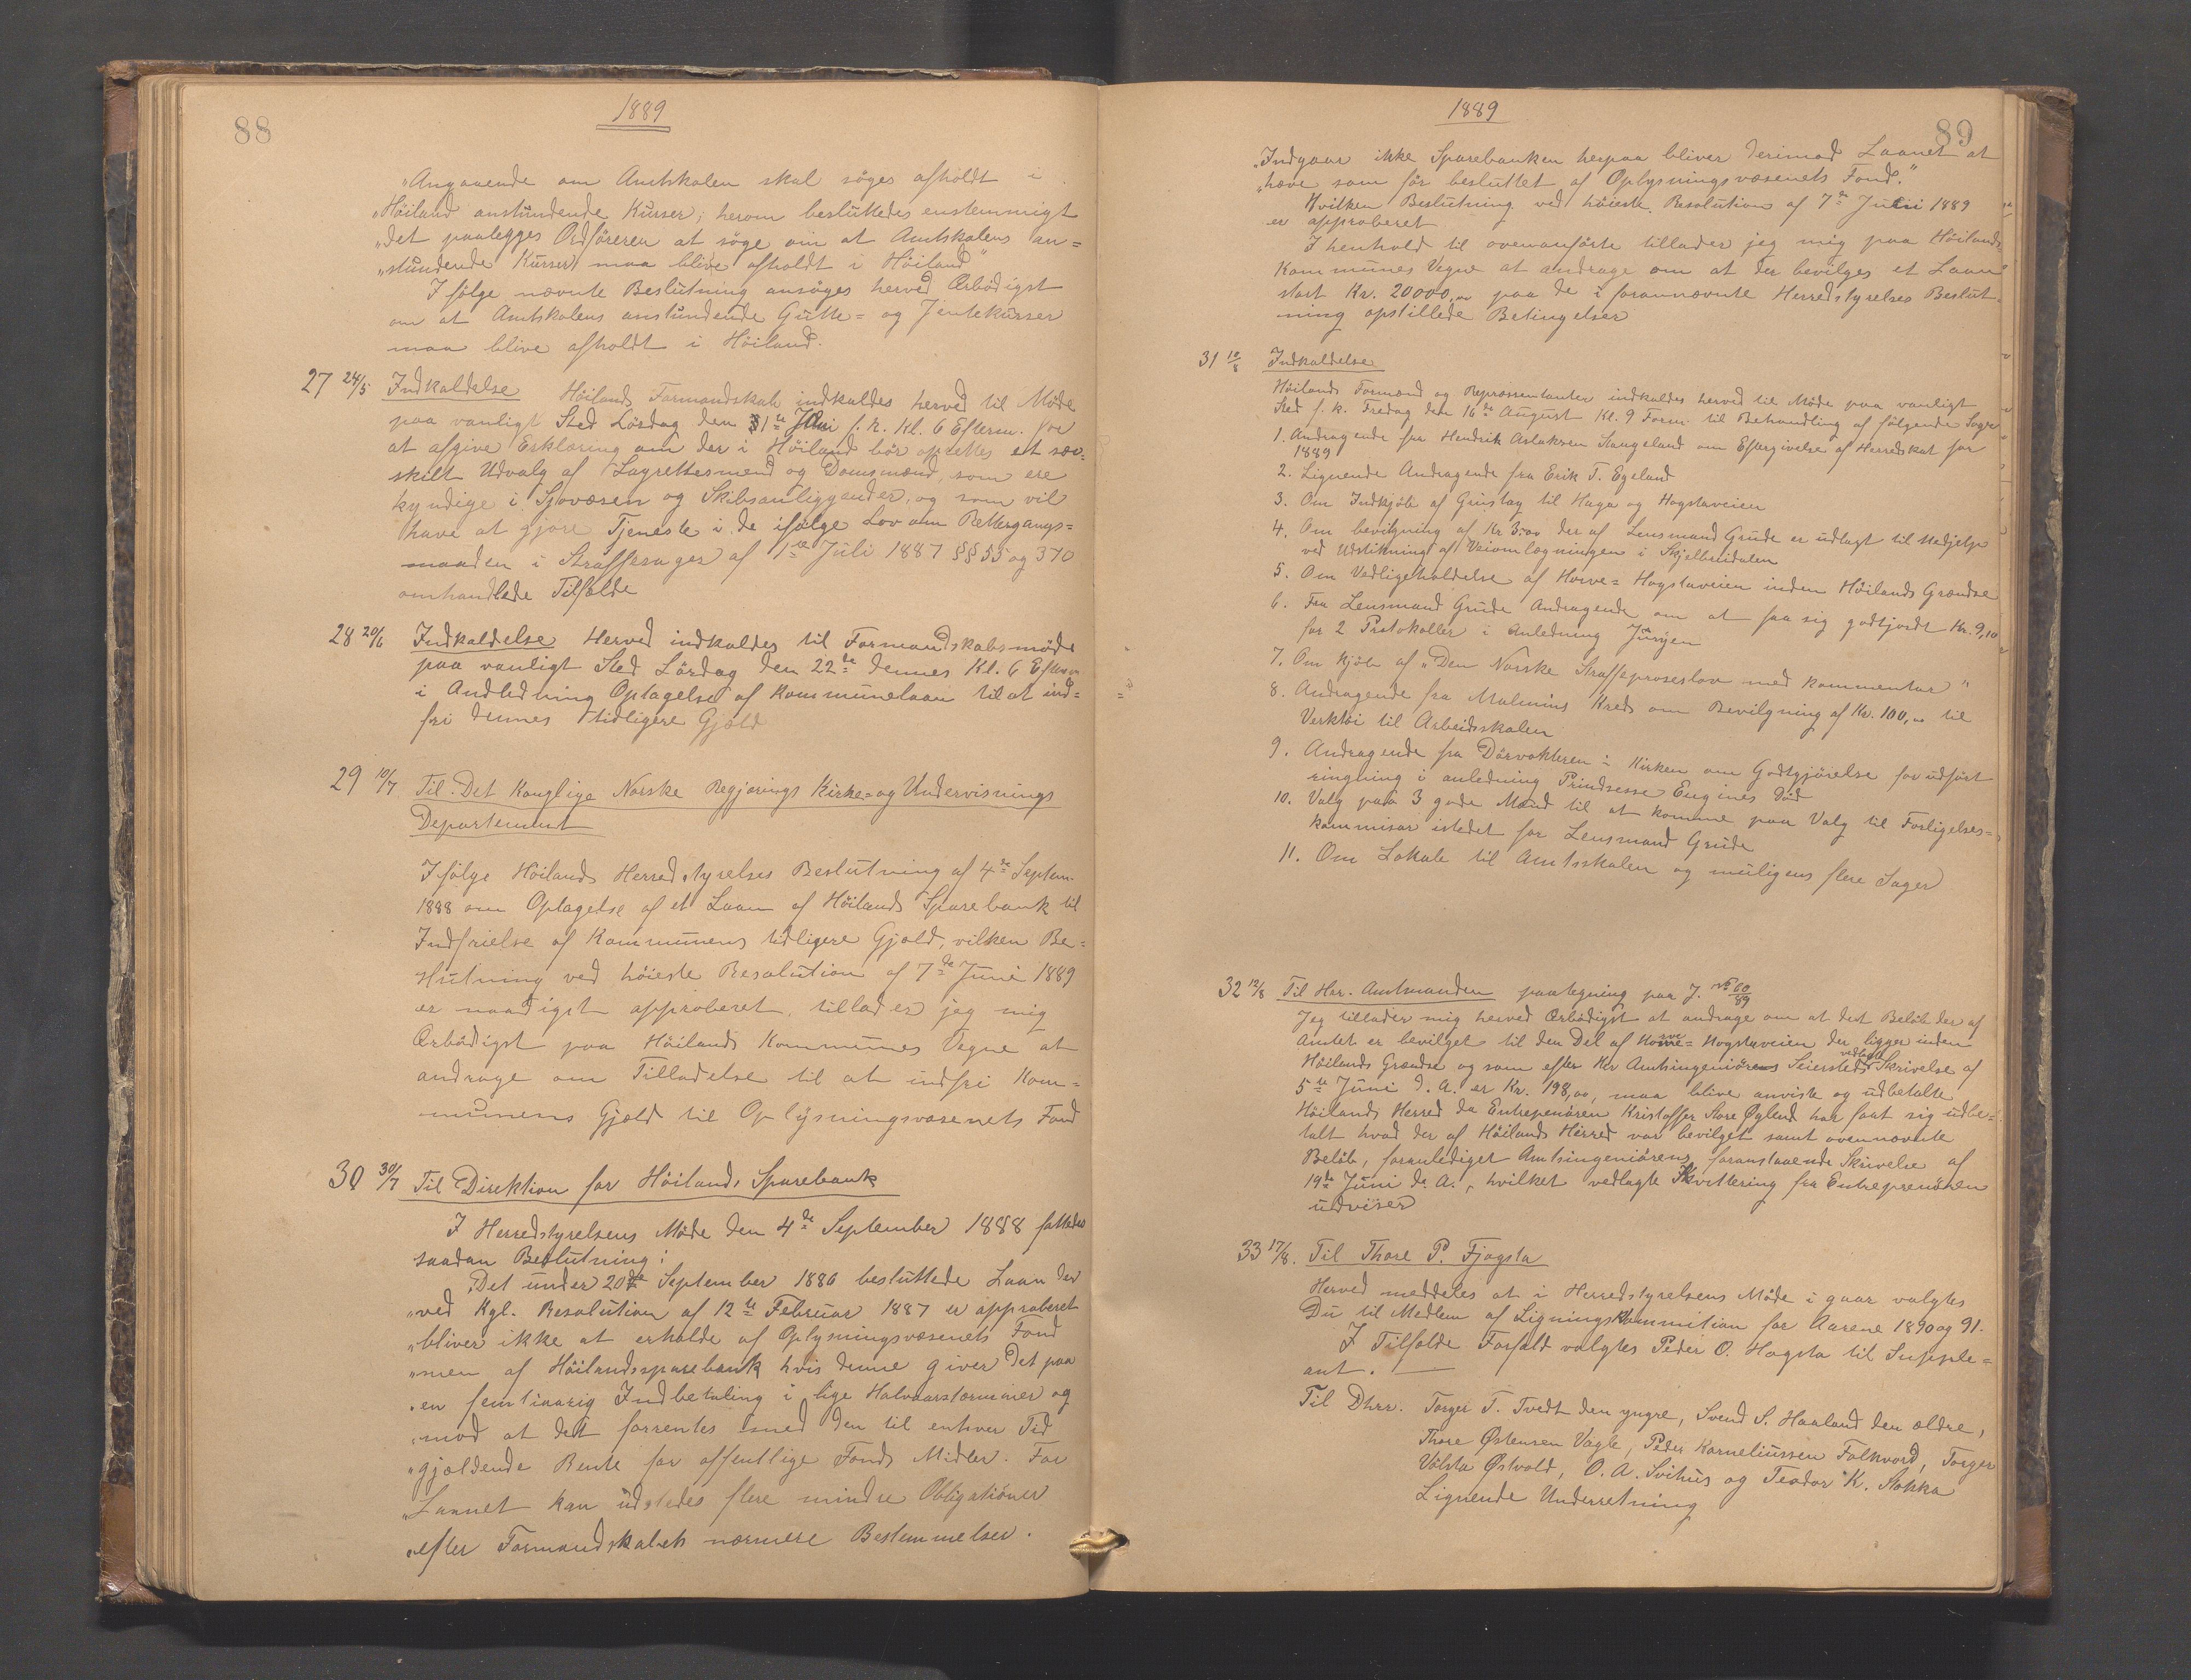 88
1889
„Angaaende om Amtskolen skal söges afholdt i
„Höiland anstundende Kurser; herom besluttedes enstemmigt
„det paalegges Ordföreren at söge om at Amtskolens an=
„stundende Kurser maa blive afholdt i Höiland"
I fölge nævnte Beslutning ansöges herved Ærbödigst
om at Amtskolens anstundende Gutte= og Jentekurser
maa blive afholdt i Höiland.
27 24/5 Indkaldelse Höilands Formandskab indkaldes herved til Möde
paa vanligt Sted Lördag den 1ste Juni f. k. Kl. 6 Efterm. for
at afgive Erklæring om der i Höiland bör oprettes et sær-
skilt Udvalg af Lagrettesmend og Domsmænd, som ere
kyndige i Sjövæsen og Skibsanliggender, og som vil
have at gjöre Tjeneste i de ifölge Lov om Rettergangs=
maaden i Straffesager af 1ste Juli 1887 §§ 55 og 370
omhandlede Tilfælde
28 20/6 Indkaldelse Herved indkaldes til Formandskabsmöde
paa vanligt Sted Lördag den 22de dennes Kl. 6 Efterm
i Andledning Optagelse af Kommunelaan til at ind=
fri dennes tidligere Gjæld
29 10/7 Til Det Konglige Norske Regjerings Kirke- og Undervisnings
Departement
Ifölge Höilands Herredstyrelses Beslutning af 4de Septem.
1888 om Optagelse af et Laan af Höilands Sparebank til
Indfrielse af Kommunens tidligere Gjæld, vilken Be=
slutning ved höieste Resolution af 7de Juni 1889
er naadigst approberet, tillader jeg mig
Ærbödigst paa Höilands Kommunes Vegne at
andrage om Tilladelse til at indfri Kom=
munens Gjæld til Oplysningsvæsenets Fond
30 30/7 Til Direktion for Höilands Sparebank
I Herredstyrelsens Möde den 4de September 1888 fattedes
saadan Beslutning:
„Det under 20de September 1886 besluttede Laan der
„ved Kgl. Resolution af 12te Februar 1887 er approberet
„bliver ikke at erholde af Oplysningsvæsenets Fond
„men af Höilandssparebank hvis denne giver det paa
„en femtiaarig Indbetaling i lige Halvaarsterminer og
„mod at det forrentes med den til enhver Tid
„gjældende Rente for offentlige Fonds Midler. For
„Laanet kan udstedes flere mindre Obligationer
„efter Formandskabets nærmere Bestemmelser.
1889
89
„Indgaar ikke Sparebanken herpaa bliver derimod Laanet at
„hæve som för besluttet af Oplysningsvæsenets Fond."
Hvilken Beslutning ved höieste Resolution af 7de Juni 1889
er approberet
I henhold til ovenanförte tillader jeg mig paa Höilands
Kommunes Vegne at andrage om at der bevilges et Laan
stort Kr. 20000,00 paa de i forannævnte Herredstyrelses Beslut-
ning opstillede Betingelser
31 10/8 Indkaldelse
Höilands Formænd og Repræsentanter indkaldes herved til Möde paa vanligt
Sted f. k. Fredag den 16de August Kl. 9 Form. til Behandling af fölgende Sager
1. Andragende fra Hendrik Aslaksen Stangeland om Eftergivelse af Herredskat for
1889
2. Lignende Andragende fra Erik T. Egeland
3. Om Indkjöb af Grustag til Hage og Hogstaveien
4. Om bevilgning af Kr 3,00 der af Lensmand Grude er udlagt til Medjelp
ved Udstikning af Veiomlægningen i Skjelbreidalen
5. Om Vedligeholdelse af Horve= Hogstaveien inden Höilands Grændse
6. Fra Lensmand Grude Andragende om at faa sig godtjordt Kr. 9,10
for 2 Protokoller i Anledning Jurijen
7. Om Kjöb af „Den Norske Straffeproseslov med Kommentar"
8. Andragende fra Malmins Kreds om Bevilgning af Kr. 100,00 til
Verktöi til Arbeidsskolen
9. Andragende fra Dörvokteren i Kirken om Godtgjörelse for udfört
ringning i anledning Prindsesse Eugines Död
10. Valg paa 3 gode Mænd til at komme paa Valg til Forligelses=
kommisær istedet for Lensmand Grude
11. Om Lokale til Amtsskolen og muligens flere Sager
32 12/8 Til Hr. Amtmanden paategning paa J. No 60/89
Jeg tillader mig herved Ærbödigst at andrage om at det Belöb der af
Amtet er bevilget til den Del af Horve= Hogstaveien der ligger inden
Höilands Grændse og som efter Hr Amtsingeniörens Seiersteds vedlagte Skrivelse af
5te Juni d. A. er Kr. 198,00, maa blive anviste og udbetalte
Höilands Herred da Entrepenören Kristoffer Aore Øglend har faat sig udbe=
talt hvad der af Höilands Herred var bevilget samt ovennævnte
Belöb, foranlediget Amtsingeniörens foranstaaende Skrivelse af
19de Juni d. A., hvilket vedlagte Kvittering fra Entreprenören
udviser
33 17/8. Til Thore P. Fjogsta
Herved meddeles at i Herredstyrelsens Möde i gaar valgtes
Du til Medlem af Ligningskommission for Aarene 1890 og 91.
I Tilfælde Forfald valgtes Peder O. Hogsta til Supple=
ant.
Til Dhrr. Torger T. Tvedt den yngre, Svend S. Haaland den ældre,
Thore Østensen Vagle, Peder Korneliussen Folkvord, Torger
Völsta Østvold, O. A. Svihus og Teodor K. Stokka
Lignende Underretning